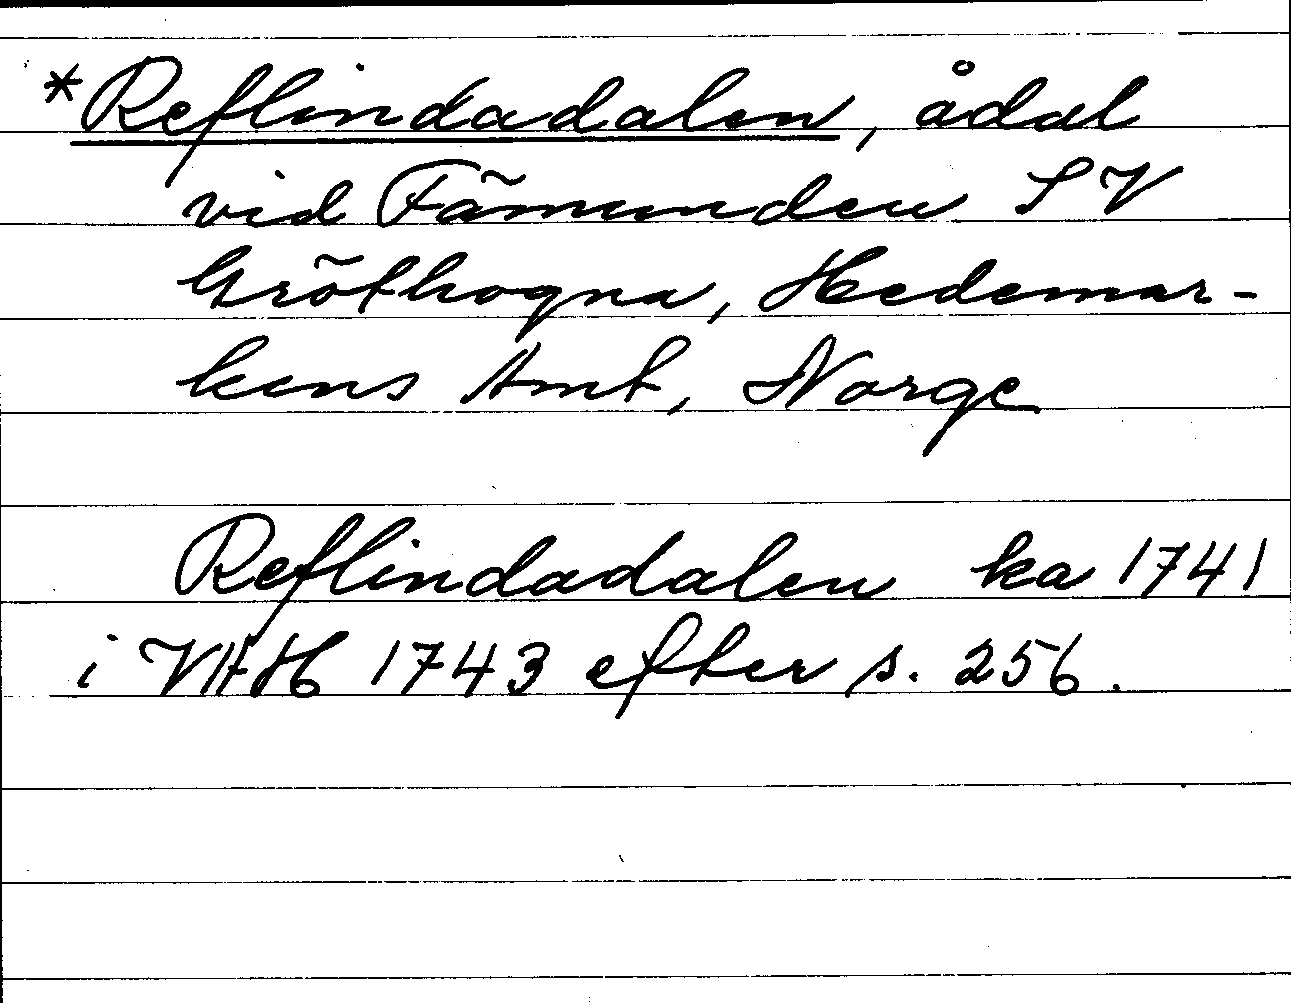 *Reflindadalen, ådal
vid Fämunden SV
Gröthogna, Hedemar-
kens Amt, Norge
Reflindadalen ka 1741
i VHH 1743 efter s. 256.